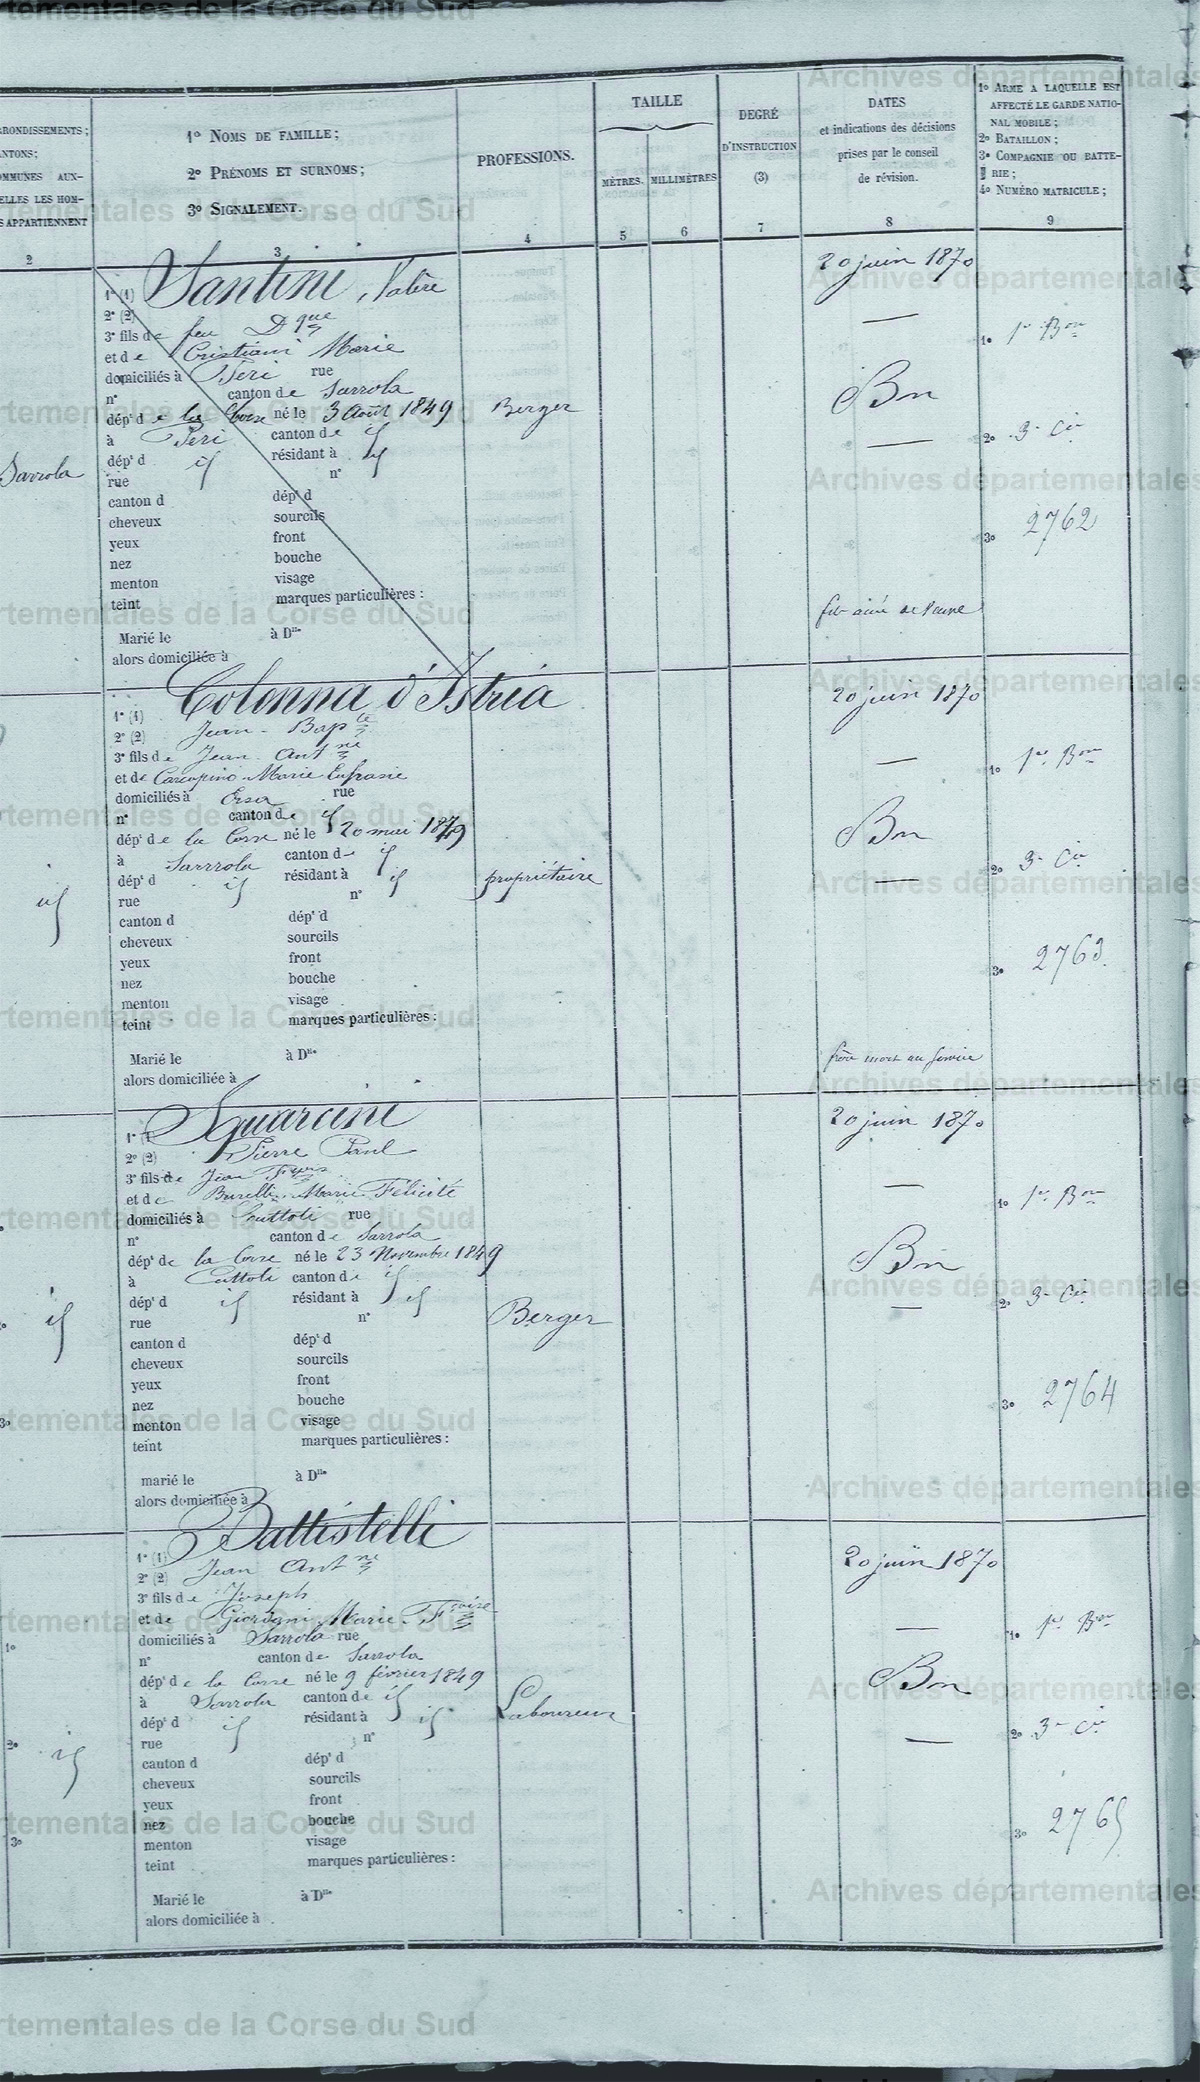 rtementales de la Corse du Sud
Archives départementales
RRONDISSEMENTS;
ANTONS;
OMMUNES AUX-
ELLES LES HOM-
S APPARTIENNENT
2
1º NOMS DE FAMILLE;
2º PRÉNOMS ET SURNOMS;
3º SIGNALEMENT.
3
PROFESSIONS.
4
TAILLE
MÈTRES.
5
MILLIMÈTRES
6
DEGRÉ
D'INSTRUCTION
(3)
7
DATES
et indications des décisions
prises par le conseil
de révision.
8
1º ARME A LAQUELLE EST
AFFECTÉ LE GARDE NATIO-
NAL MOBILE;
2º BATAILLON;
3º COMPAGNIE OU BATTE-
RIE;
4º NUMÉRO MATRICULE;
9
Sarrola
1º (1) Santini, Valère
2º (2)
3º fils de feu Dque
et de Cristiani Marie
domiciliés à Peri rue
nº canton de Sarrola
dépt de la Corse né le 3 Août 1849
à Peri canton de id
dépt d id résidant à id
rue nº
canton d dépt d
cheveux sourcils
yeux front
nez bouche
menton visage
teint marques particulières :
Marié le à Dlle
alors domiciliée à
Berger
20 juin 1870
Bon
fils aîné de veuve
1º 1er Bon
2º 3e Cie
3º 2762
id
1º (1) Colonna d'Istria
2º (2) Jean-Bapte
3º fils de Jean Antne
et de Carcopino Marie Eufrasie
domiciliés à rue
nº canton de id
dépt de la Corse né le 20 mai 1849
à Sarrola canton de id
dépt d id résidant à id
rue nº
canton d dépt d
cheveux sourcils
yeux front
nez bouche
menton visage
teint marques particulières :
Marié le à Dlle
alors domiciliée à
propriétaire
20 juin 1870
Bon
frère mort au service
1º 1er Bon
2º 3e Cie
3º 2763
id
1º (1 Squarcini
2º (2) Pierre Paul
3º fils de Jean
et de Burelli Marie Félicité
domiciliés à Cuttoli rue
nº canton de Sarrola
dépt de la Corse né le 23 Novembre 1849
à Cuttoli canton de id
dépt d id résidant à id
rue nº
canton d dépt d
cheveux sourcils
yeux front
nez bouche
menton visage
teint marques particulières :
marié le à Dlle
alors domiciliée à
Berger
20 juin 1870
Bon
1º 1er Bon
2º 3e Cie
3º 2764
id
1º (1) Battistelli
2º (2) Jean Antne
3º fils de Joseph
et de Giordani Marie
domiciliés à Sarrola rue
nº canton de Sarrola
dépt de la Corse né le 9 février 1849
à Sarrola canton de id
dépt d id résidant à id
rue nº
canton d dépt d
cheveux sourcils
yeux front
nez bouche
menton visage
teint marques particulières :
Marié le à Dlle
alors domiciliée à
Laboureur
20 juin 1870
Bon
1º 1er Bon
2º 3e Cie
3º 2765